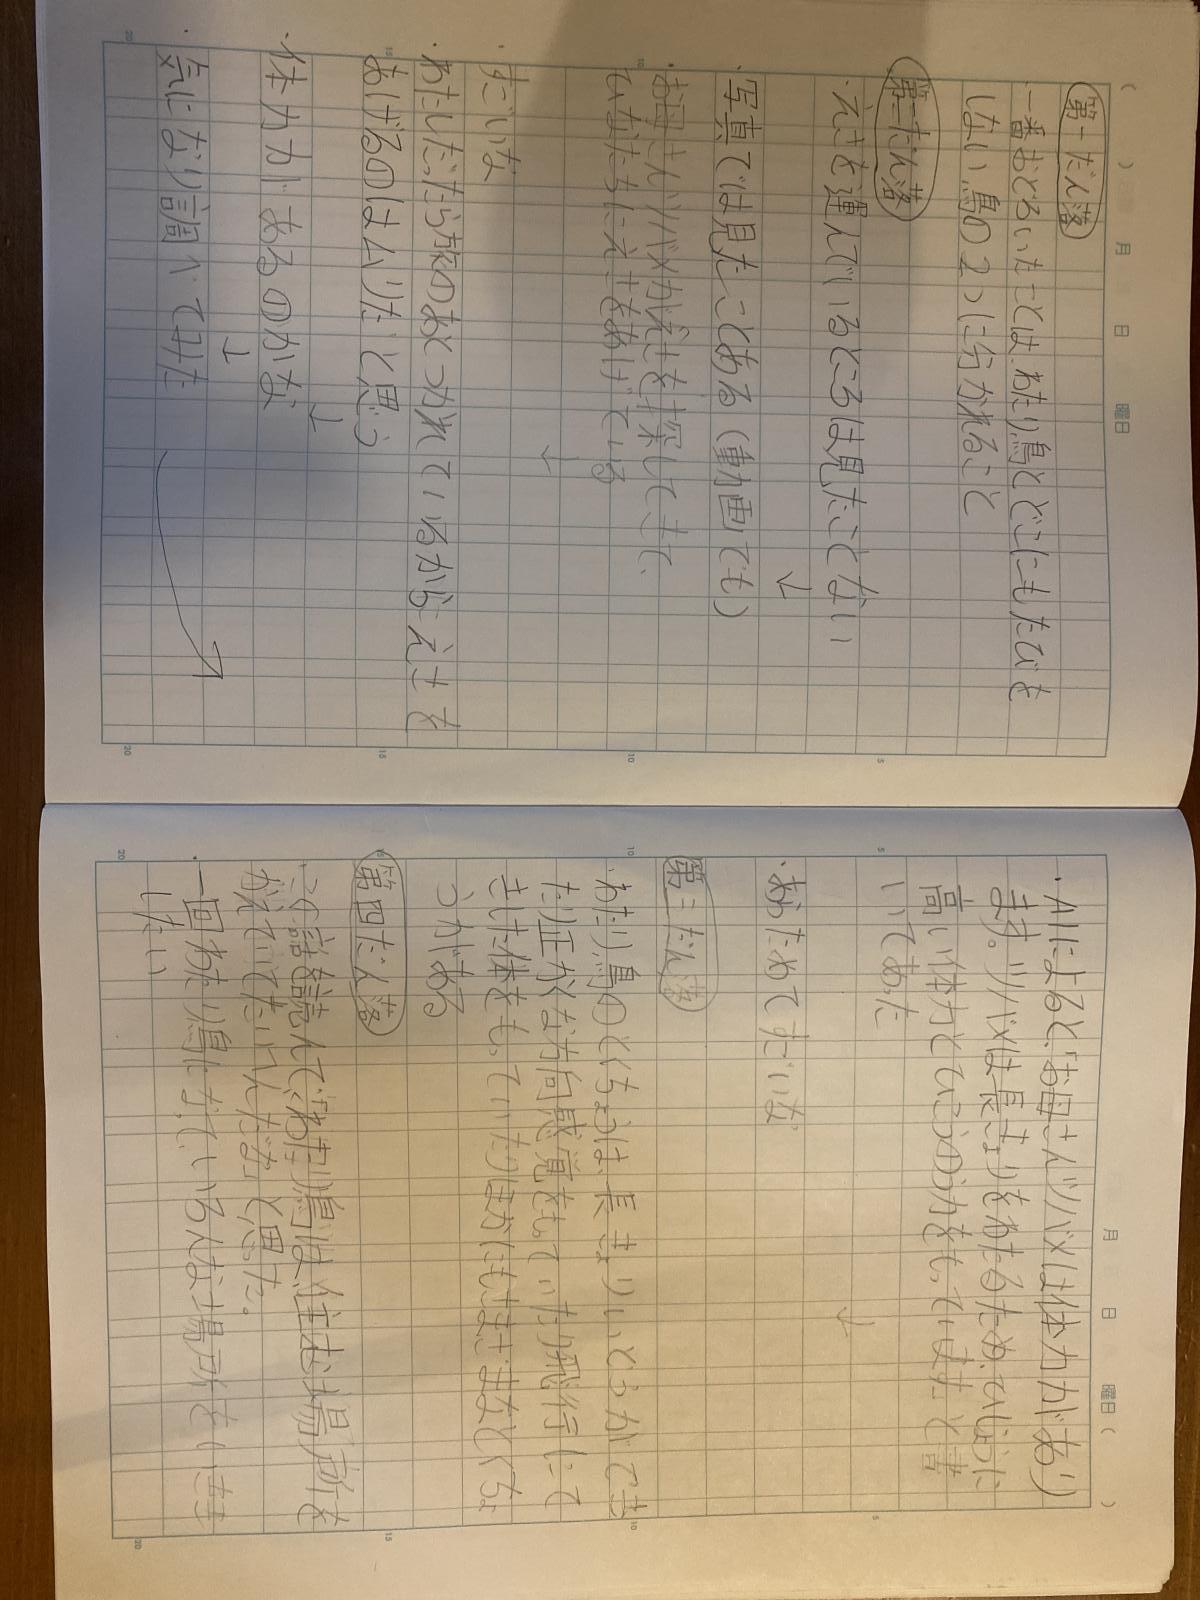 ( ) 月 日 曜日
第一だん落
・一番おどろいたことは、わたり鳥とどこにもたびを
しない鳥の2つに分かれること
第二だん落
・えさを運んでいるところは見たことない
↓
・写真では見たことある(動画でも)
・お母さんツバメがえさを探してきて、
ひなたちにえさをあげている
↓
・すごいな
・わたしだったら旅のあとつかれているからえさを
あげるのはムリだと思う
↓
・体力があるのかな
↓
・気になり調べてみた
5
10
15
20
月 日 曜日 ( )
・AIによると、「お母さんツバメは体力があり
ます。ツバメは長きょりをわたるため、ひじょうに
高い体力とひこうのう力をもっています」と書
いてあった
↓
・あらためてすごいな
第三だん落
・わたり鳥のとくちょうは、長きょりいどうができ
たり正かくな方向感覚をもっていたり飛行にてき
した体をもっていたりほかにもさまざまなとくちょ
うがある
第四だん落
・この話を読んで、「わたり鳥は、住む場所を
かえていてたいへんだな」と思った。
・一回わたり鳥になって、いろんな場所をいどう
したい
5
10
15
20